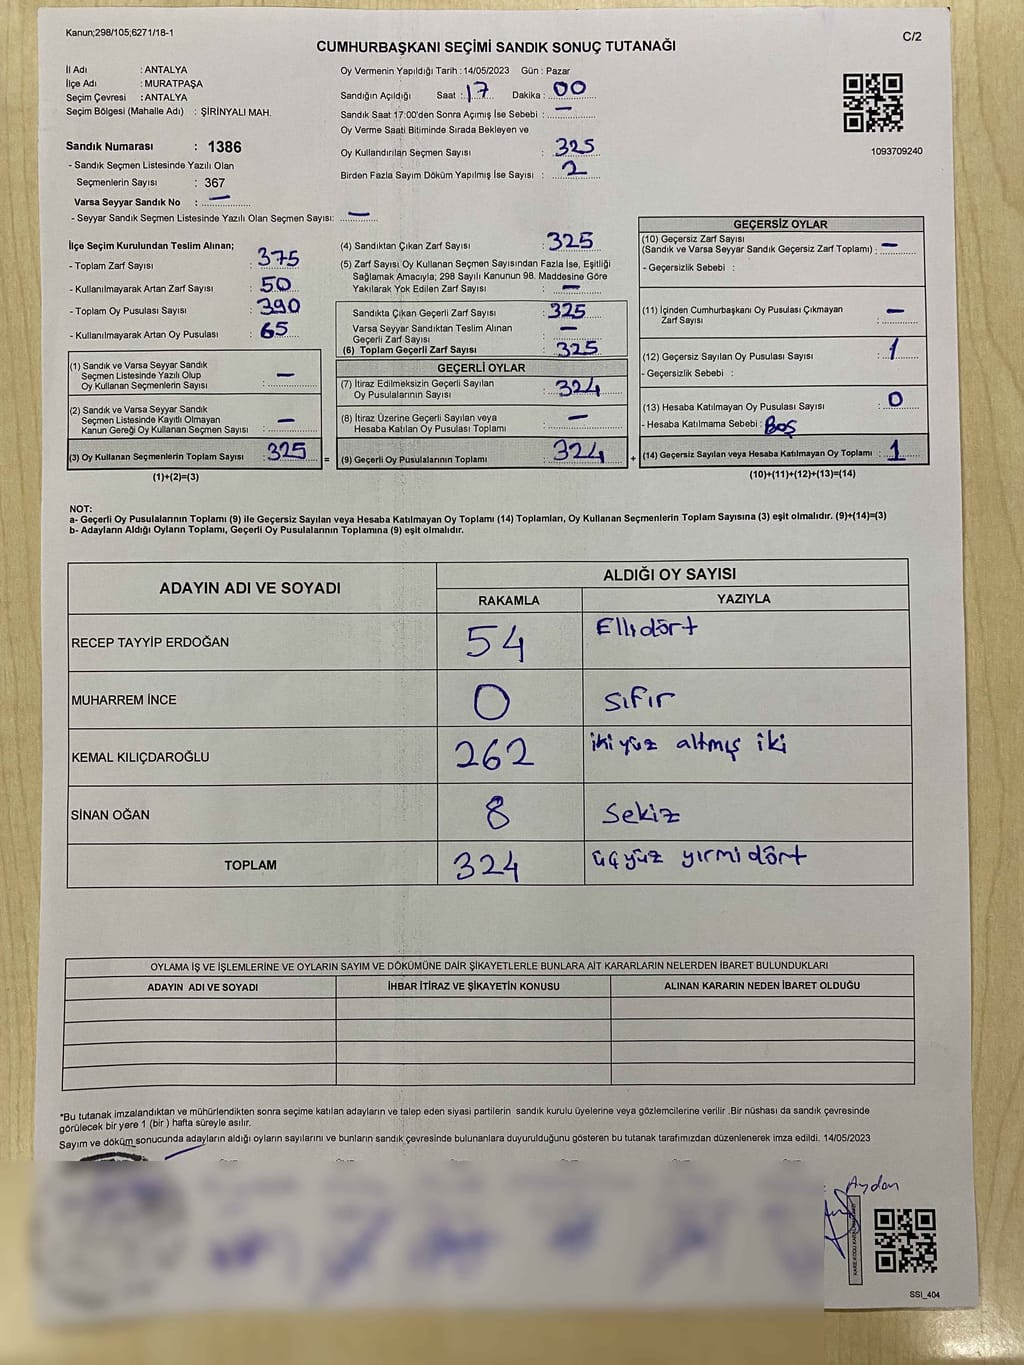 Kanun;298/105;6271/18-1
C/2
CUMHURBAŞKANI SEÇİMİ SANDIK SONUÇ TUTANAĞI
İl Adı : ANTALYA
İlçe Adı : MURATPAŞA
Seçim Çevresi : ANTALYA
Seçim Bölgesi (Mahalle Adı) : ŞİRİNYALI MAH.
Sandık Numarası : 1386
- Sandık Seçmen Listesinde Yazılı Olan
Seçmenlerin Sayısı : 367
Varsa Seyyar Sandık No : —
- Seyyar Sandık Seçmen Listesinde Yazılı Olan Seçmen Sayısı: —
Oy Vermenin Yapıldığı Tarih : 14/05/2023 Gün : Pazar
Sandığın Açıldığı Saat : 17 Dakika : 00
Sandık Saat 17:00'den Sonra Açımış İse Sebebi : —
Oy Verme Saati Bitiminde Sırada Bekleyen ve
Oy Kullandırılan Seçmen Sayısı : 325
Birden Fazla Sayım Döküm Yapılmış İse Sayısı : 2
1093709240
İlçe Seçim Kurulundan Teslim Alınan;
- Toplam Zarf Sayısı : 375
- Kullanılmayarak Artan Zarf Sayısı : 50
- Toplam Oy Pusulası Sayısı : 390
- Kullanılmayarak Artan Oy Pusulası : 65
(1) Sandık ve Varsa Seyyar Sandık
Seçmen Listesinde Yazılı Olup
Oy Kullanan Seçmenlerin Sayısı : —
(2) Sandık ve Varsa Seyyar Sandık
Seçmen Listesinde Kayıtlı Olmayan
Kanun Gereği Oy Kullanan Seçmen Sayısı : —
(3) Oy Kullanan Seçmenlerin Toplam Sayısı : 325 =
(1)+(2)=(3)
(4) Sandıktan Çıkan Zarf Sayısı : 325
(5) Zarf Sayısı Oy Kullanan Seçmen Sayısından Fazla İse, Eşitliği
Sağlamak Amacıyla; 298 Sayılı Kanunun 98. Maddesine Göre
Yakılarak Yok Edilen Zarf Sayısı : —
Sandıkta Çıkan Geçerli Zarf Sayısı : 325
Varsa Seyyar Sandıktan Teslim Alınan
Geçerli Zarf Sayısı : —
(6) Toplam Geçerli Zarf Sayısı : 325
GEÇERLİ OYLAR
(7) İtiraz Edilmeksizin Geçerli Sayılan
Oy Pusulalarının Sayısı : 324
(8) İtiraz Üzerine Geçerli Sayılan veya
Hesaba Katılan Oy Pusulası Toplamı : —
(9) Geçerli Oy Pusulalarının Toplamı : 324 +
GEÇERSİZ OYLAR
(10) Geçersiz Zarf Sayısı
(Sandık ve Varsa Seyyar Sandık Geçersiz Zarf Toplamı) : —
- Geçersizlik Sebebi :
(11) İçinden Cumhurbaşkanı Oy Pusulası Çıkmayan
Zarf Sayısı : —
(12) Geçersiz Sayılan Oy Pusulası Sayısı : 1
- Geçersizlik Sebebi :
(13) Hesaba Katılmayan Oy Pusulası Sayısı : 0
- Hesaba Katılmama Sebebi : Boş
(14) Geçersiz Sayılan veya Hesaba Katılmayan Oy Toplamı : 1
(10)+(11)+(12)+(13)=(14)
NOT:
a- Geçerli Oy Pusulalarının Toplamı (9) ile Geçersiz Sayılan veya Hesaba Katılmayan Oy Toplamı (14) Toplamları, Oy Kullanan Seçmenlerin Toplam Sayısına (3) eşit olmalıdır. (9)+(14)=(3)
b- Adayların Aldığı Oyların Toplamı, Geçerli Oy Pusulalarının Toplamına (9) eşit olmalıdır.
ADAYIN ADI VE SOYADI
ALDIĞI OY SAYISI
RAKAMLA YAZIYLA
RECEP TAYYİP ERDOĞAN 54 Ellidört
MUHARREM İNCE 0 sıfır
KEMAL KILIÇDAROĞLU 262 ikiyüz altmış iki
SİNAN OĞAN 8 Sekiz
TOPLAM 324 üçyüz yirmi dört
OYLAMA İŞ VE İŞLEMLERİNE VE OYLARIN SAYIM VE DÖKÜMÜNE DAİR ŞİKAYETLERLE BUNLARA AİT KARARLARIN NELERDEN İBARET BULUNDUKLARI
ADAYIN ADI VE SOYADI İHBAR İTİRAZ VE ŞİKAYETİN KONUSU ALINAN KARARIN NEDEN İBARET OLDUĞU
*Bu tutanak imzalandıktan ve mühürlendikten sonra seçime katılan adayların ve talep eden siyasi partilerin sandık kurulu üyelerine veya gözlemcilerine verilir .Bir nüshası da sandık çevresinde
görülecek bir yere 1 (bir ) hafta süreyle asılır.
Sayım ve döküm sonucunda adayların aldığı oyların sayılarını ve bunların sandık çevresinde bulunanlara duyurulduğunu gösteren bu tutanak tarafımızdan düzenlenerek imza edildi. 14/05/2023
Aydan
SSI_404